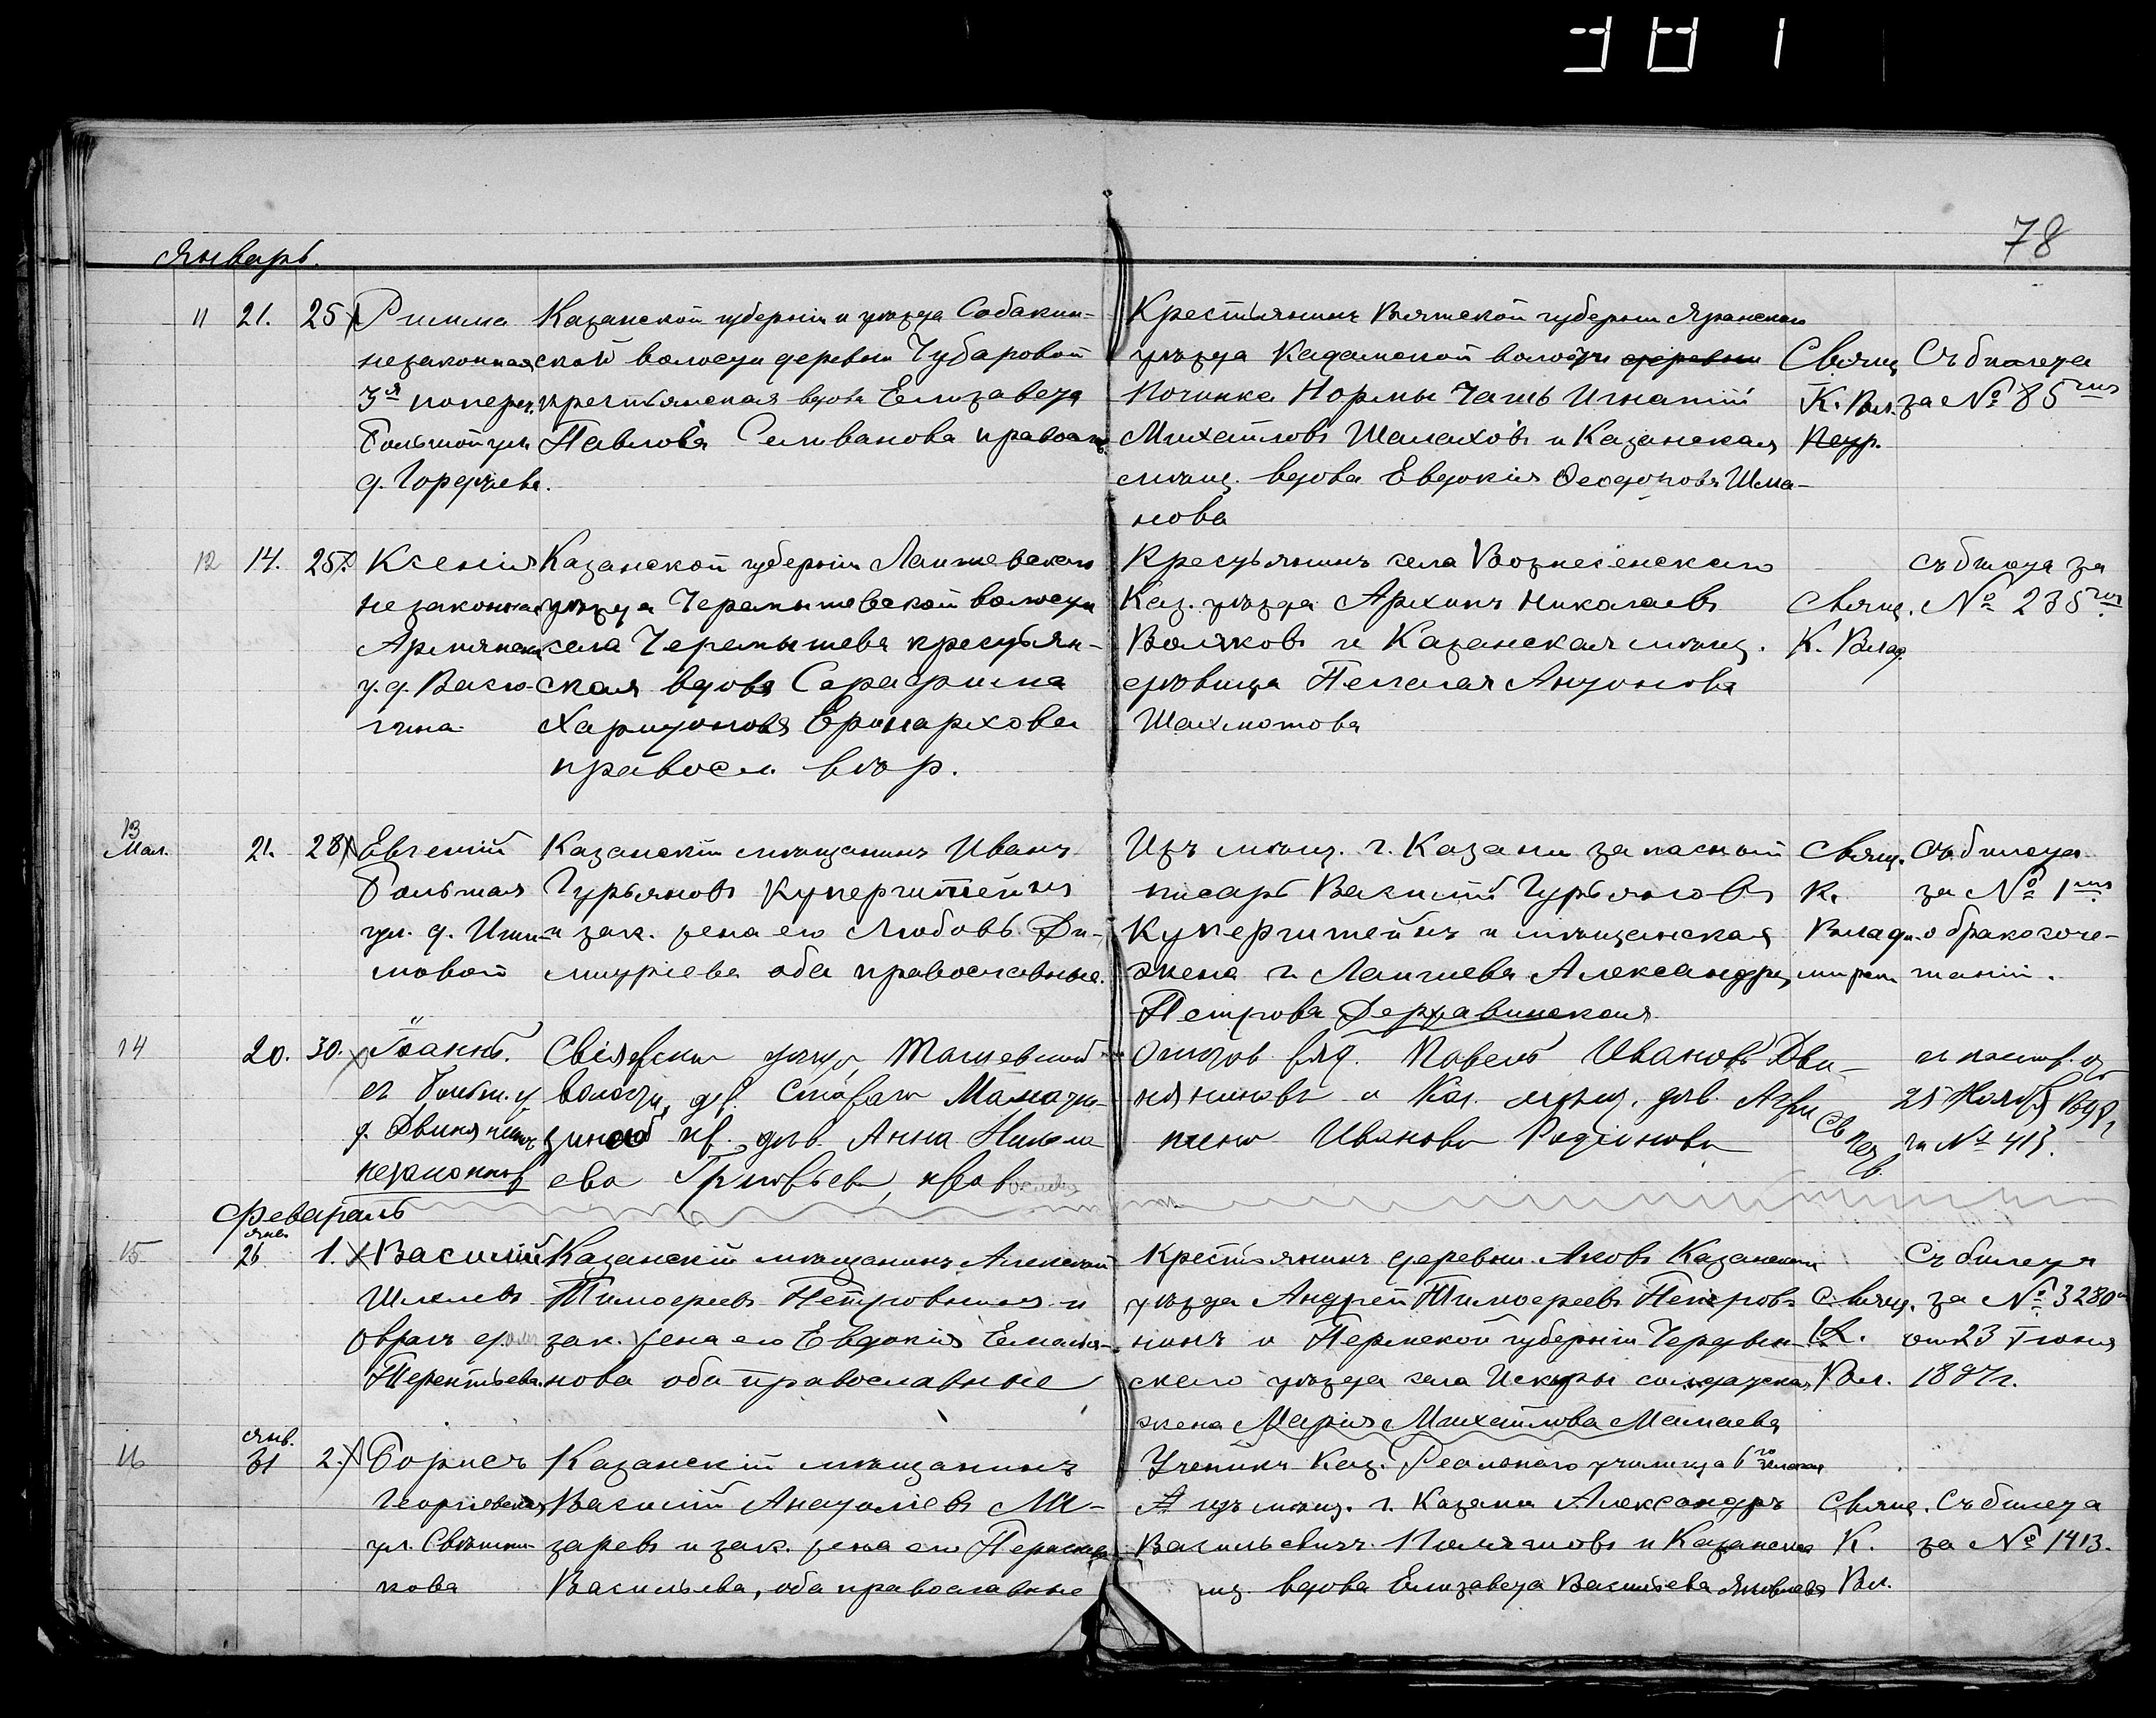 381
78
Январь.
11 21. 25 Римма
незаконная
3я попереч.
Большой ул.
д. Гордеева.
Казанской губернии и уѣзда Собакин-
ской волости деревни Чубаровой
крестьянская вдова Елизавета
Павлова Селиванова правосл.
Крестьянинъ Вятской губернии Яранскаго
уѣзда Кадамской волости деревни
Починка Нормы Чашъ Игнатій
Михайловъ Шалаховъ и Казанская
мѣщ. вдова Евдокія Ѳеодорова Шма-
нова
Свящ.
К. Вл.
Петр.
Съ билета
за № 85
12 14. 25 Ксенія
незаконная
Армянская
у. д. Васю-
гина
Казанской губерніи Лаишевскаго
уѣзда Черемышевской волости
села Черемышева крестьян-
ская вдова Серафима
Харитонова
правосл. вѣр.
Крестьянинъ села Вознесенскаго
Каз. уѣзда Архипъ Николаевъ
Волковъ и Казанская мѣщ.
дѣвица Пелагея Антонова
Шахмотова
Свящ.
К. Влад.
съ билета за
№ 235
13
Мал.
21. 28 Евгеній
Большая
ул. д. Иши-
мовой
Казанскій мѣщанинъ Иванъ
Гурьяновъ Купергитейнъ
и зак. жена его Любовь Ди-
митріева оба православные.
Изъ мѣщ. г. Казани запасный
писарь Василій Гурьяновъ
Купергитейнъ и мѣщанская
жена г. Лаишева Александра
Петрова Державинская
Свящ.
К.
Влади-
миръ
Съ билета
за № 1
о бракосоче-
таніи.
14 20. 30. Іоаннъ.
д. Двинянинъ
незаконнор
Свіяжскаго уѣзда,
волости, д.
кр. дѣв. Анна Никола
ева Григорьева, прав
Отст. ряд. Павелъ Ивановъ Дви-
няниновъ и Каз. мѣщ. дѣв. Агри
пина Иванова Родіонова
25 Ноября
за № 413.
Февраль
янв
15 26 1. Василій
Шмелевъ
оврагъ д.
Терентьева
Казанскій мѣщанинъ Алексѣй
Тимофеевъ Петровнинъ и
зак. жена его Евдокія Емелья-
нова оба православные
Крестьянинъ деревни Аковъ Казанскаго
уѣзда Андрей Тимофеевъ Петров-
нинъ и Пермской губерніи Чердын-
скаго уѣзда села Искоры солдатская
жена Марія Михайлова Мамаева
Свящ.
К.
Вл.
Съ билета
за № 3280
отъ 23 Іюня
1897 г.
янв.
16 31 2. Борисъ
Георгіевская
ул. д. Свѣшни-
кова
Казанскій мѣщанинъ
Василій Анатоліевъ Ми-
заревъ и зак. жена его
Васильева, оба православные
Ученикъ Каз. Реальнаго училища 6го класса
изъ мѣщ. г. Казани Александръ
Васильевичъ и Казанская
мѣщ. вдова Елизавета Васильева Яковлева
Свящ.
К.
Вл.
Съ билета
за № 1413.